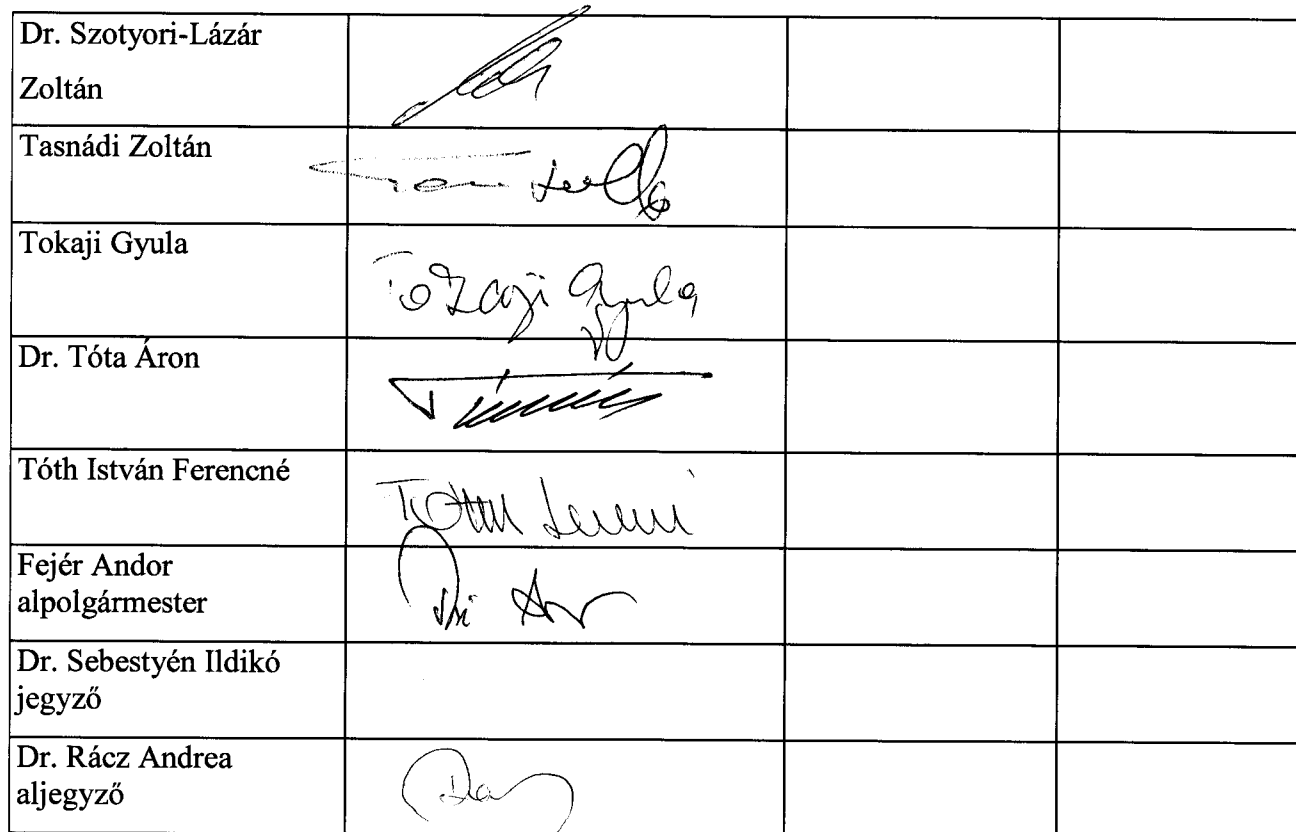 Dr. Szotyori-Lázár
Zoltán
Tasnádi Zoltán
Tokaji Gyula
Tokaji Gyula
Dr. Tóta Áron
Tóth István Ferencné
Fejér Andor
alpolgármester
Dr. Sebestyén Ildikó
jegyző
Dr. Rácz Andrea
aljegyző